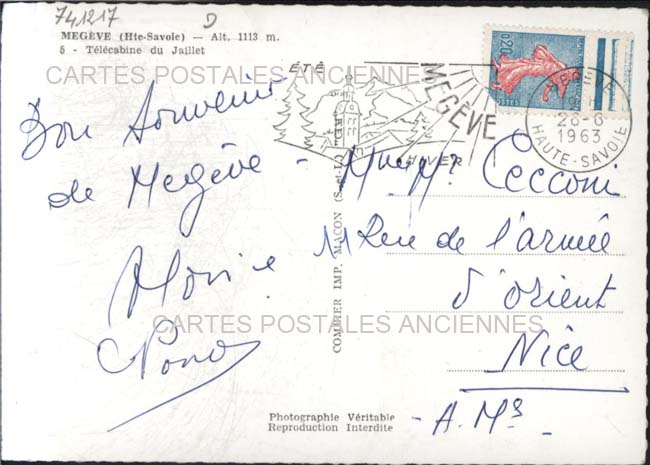 741217 D
MEGÈVE (Hte-Savoie) — Alt. 1113 m.
5 - Télécabine du Jaillet
CARTES POSTALES ANCIENNES
Bon Souvenir
de Megève -
ÉTÉ
MEGÈVE
HIVER
0,20
POSTES
MEGEVE
26-6
1963
HAUTE-SAVOIE
COMBIER IMP. MACON (S.-et-L.)
Cecconi
11 Rue de l'armée
d'orient
Nice
- A. Mes
CARTES POSTALES ANCIENNES
Photographie Véritable
Reproduction Interdite